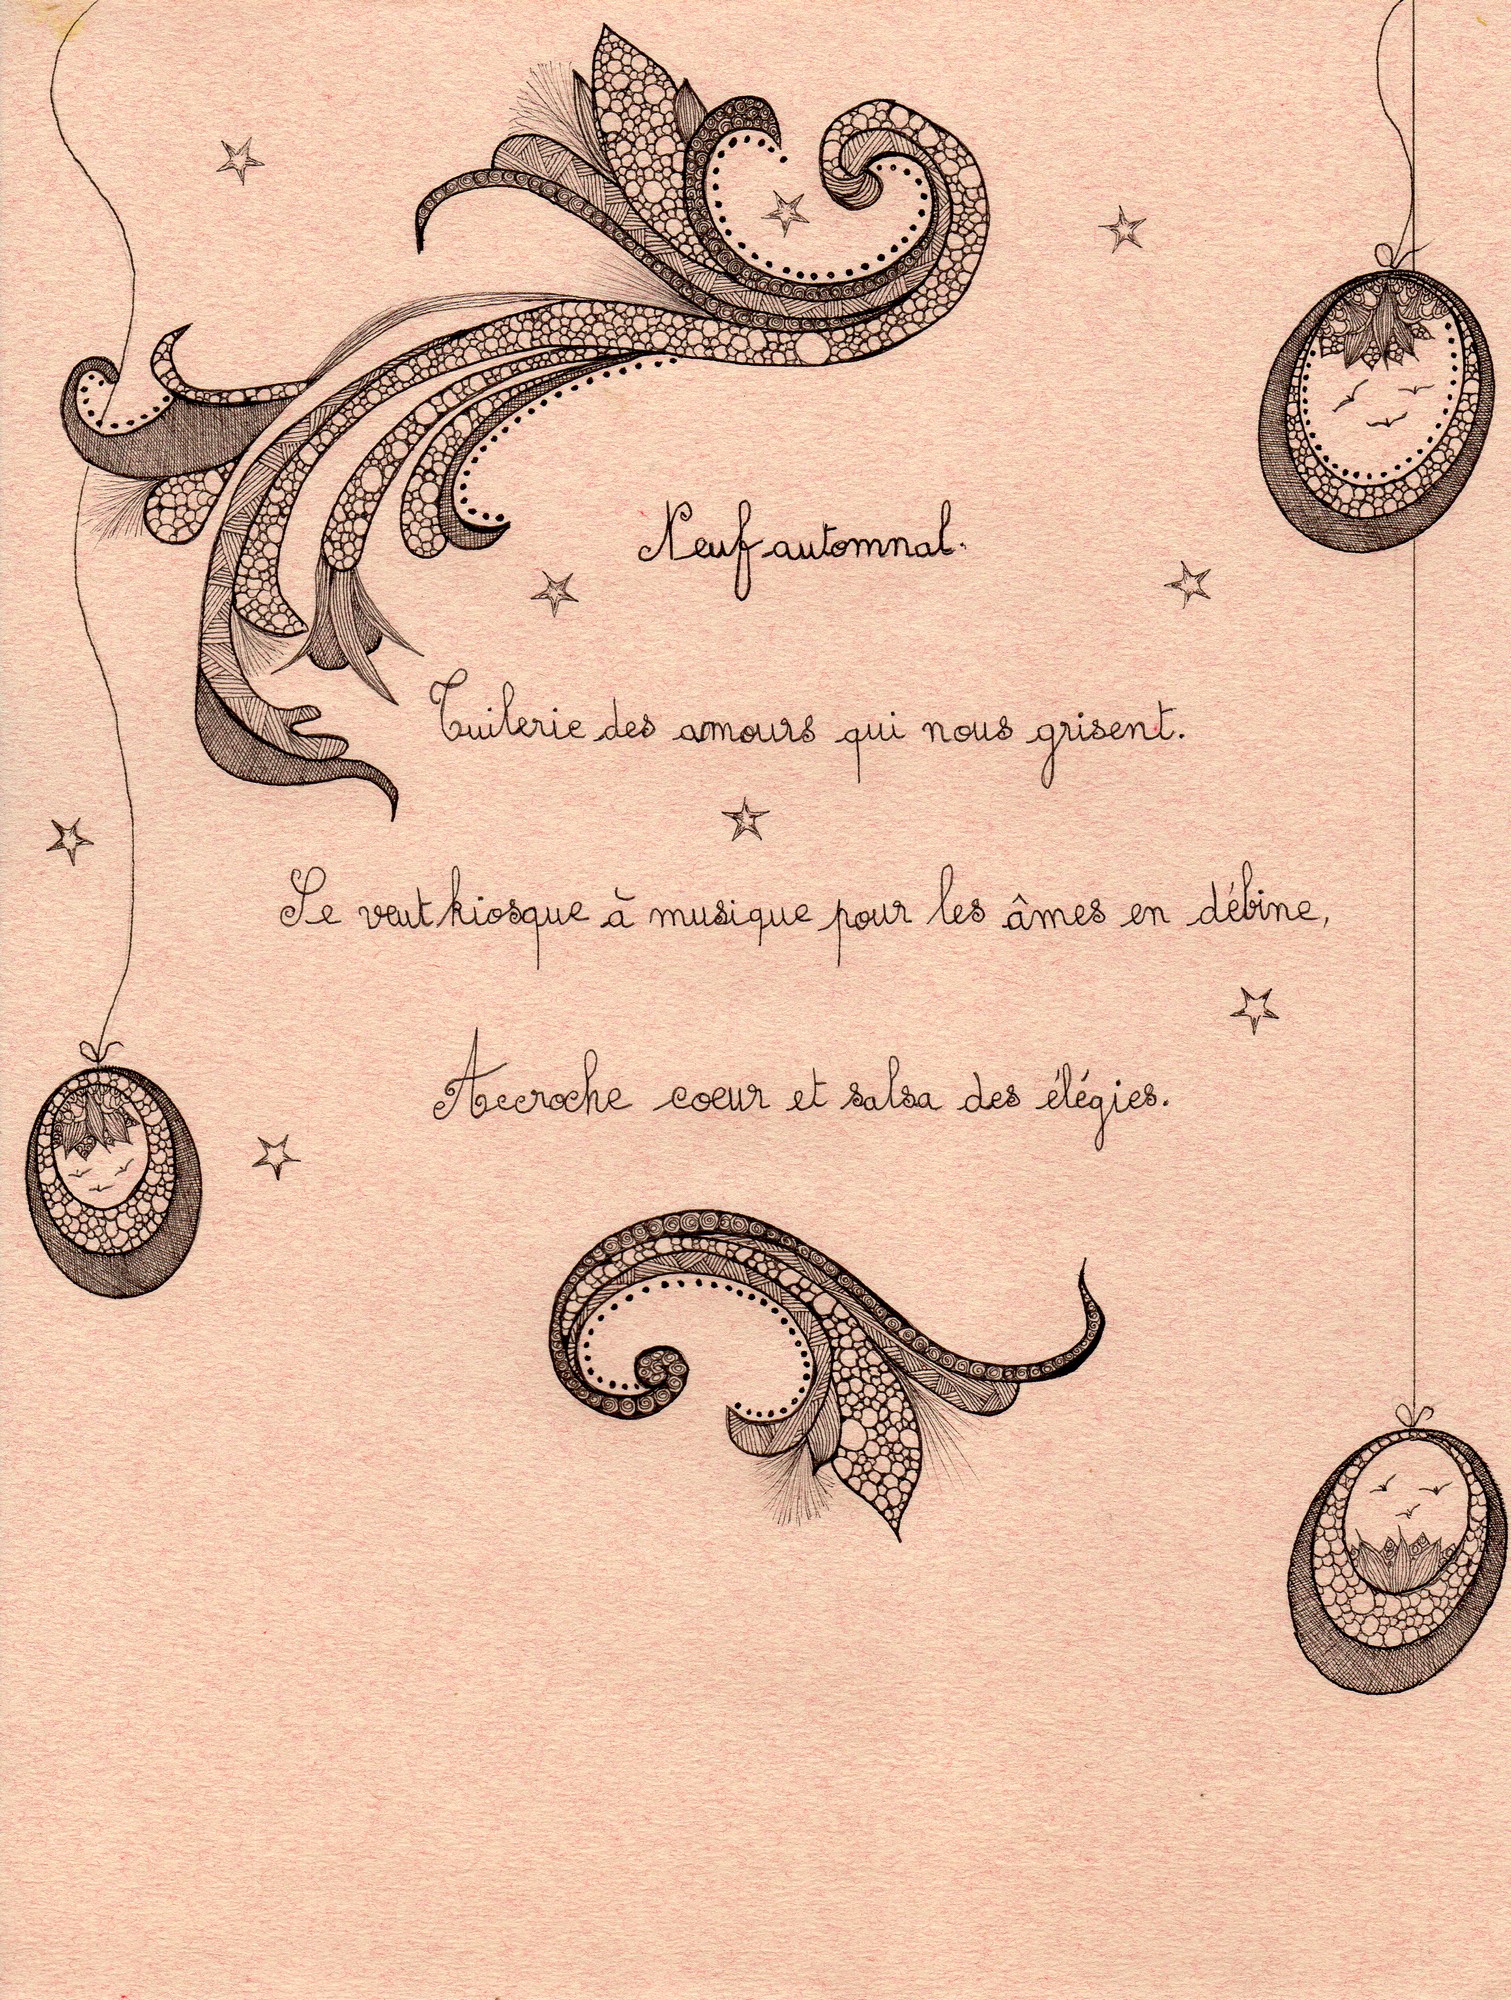 Neuf automnal.
Tuilerie des amours qui nous grisent.
Se veut kiosque à musique pour les âmes en débine,
Accroche coeur et salsa des élégies.